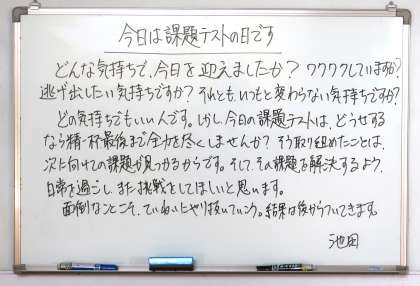 今日は課題テストの日です
どんな気持ちで、今日を迎えましたか？ワクワクしていますか？
逃げ出したい気持ちですか？それとも、いつもと変わらない気持ちですか？
どの気持ちでもいいんです。しかし、今日の課題テストは、どうせする
なら精一杯最後まで全力を尽くしませんか？そう取り組めたことは、
次に向けての課題が見つかるからです。そして、その課題を解決するよう、
日常を過ごし、また挑戦をしてほしいと思います。
面倒なことこそ、ていねいにやり抜いていこう。結果は後からついてきます。
池田